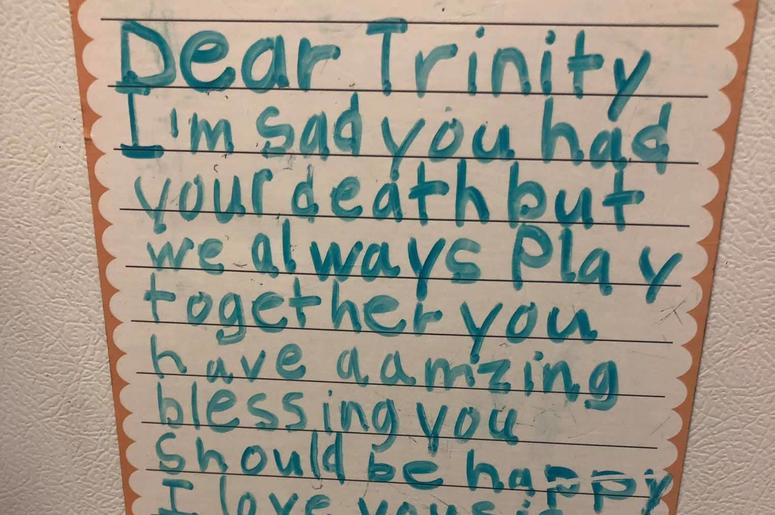 Dear Trinity
I'm sad you had
your death but
we always play
together you
have a amzing
blessing you
should be happy
I love you